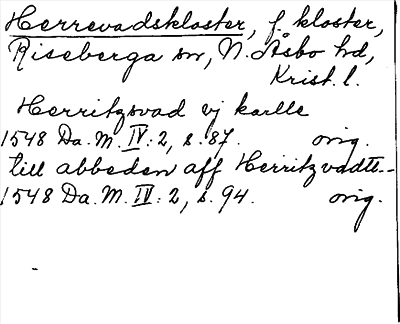 Herrevadskloster, f. kloster,
Riseberga sn, N. Åsbo hd,
Krist. l.
Herritzvad vj karlle
1548 Da. M. IV: 2, s. 87. orig.
till abbeden aff Herritzvadtt--
1548 Da. M. IV: 2, s. 94. orig.